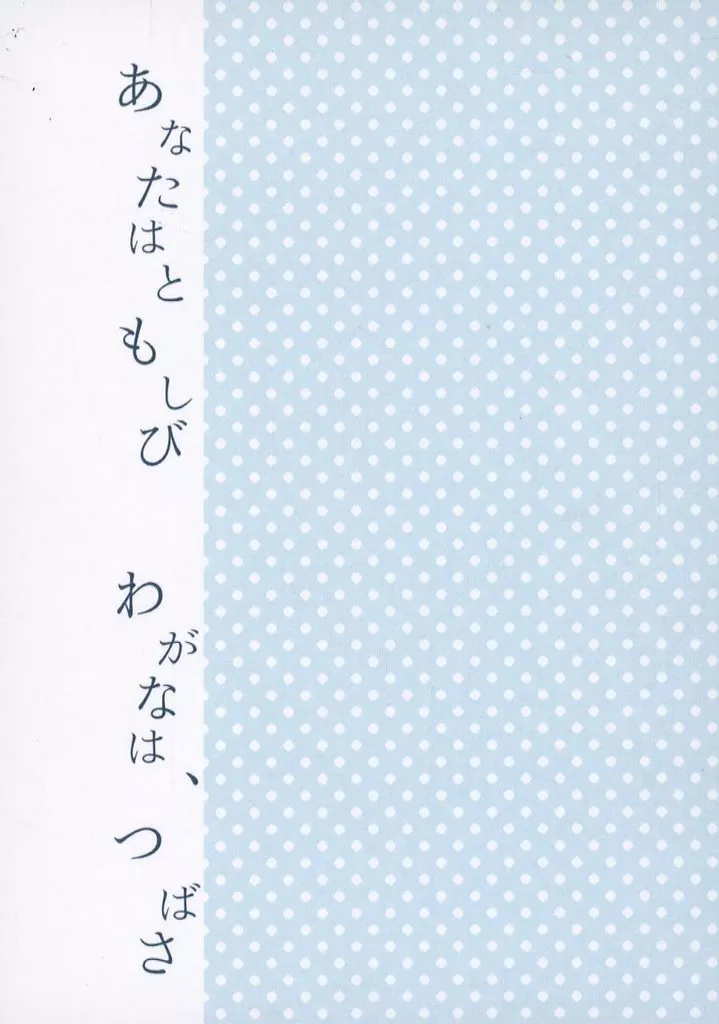 あなたはともしび わがなは、つばさ